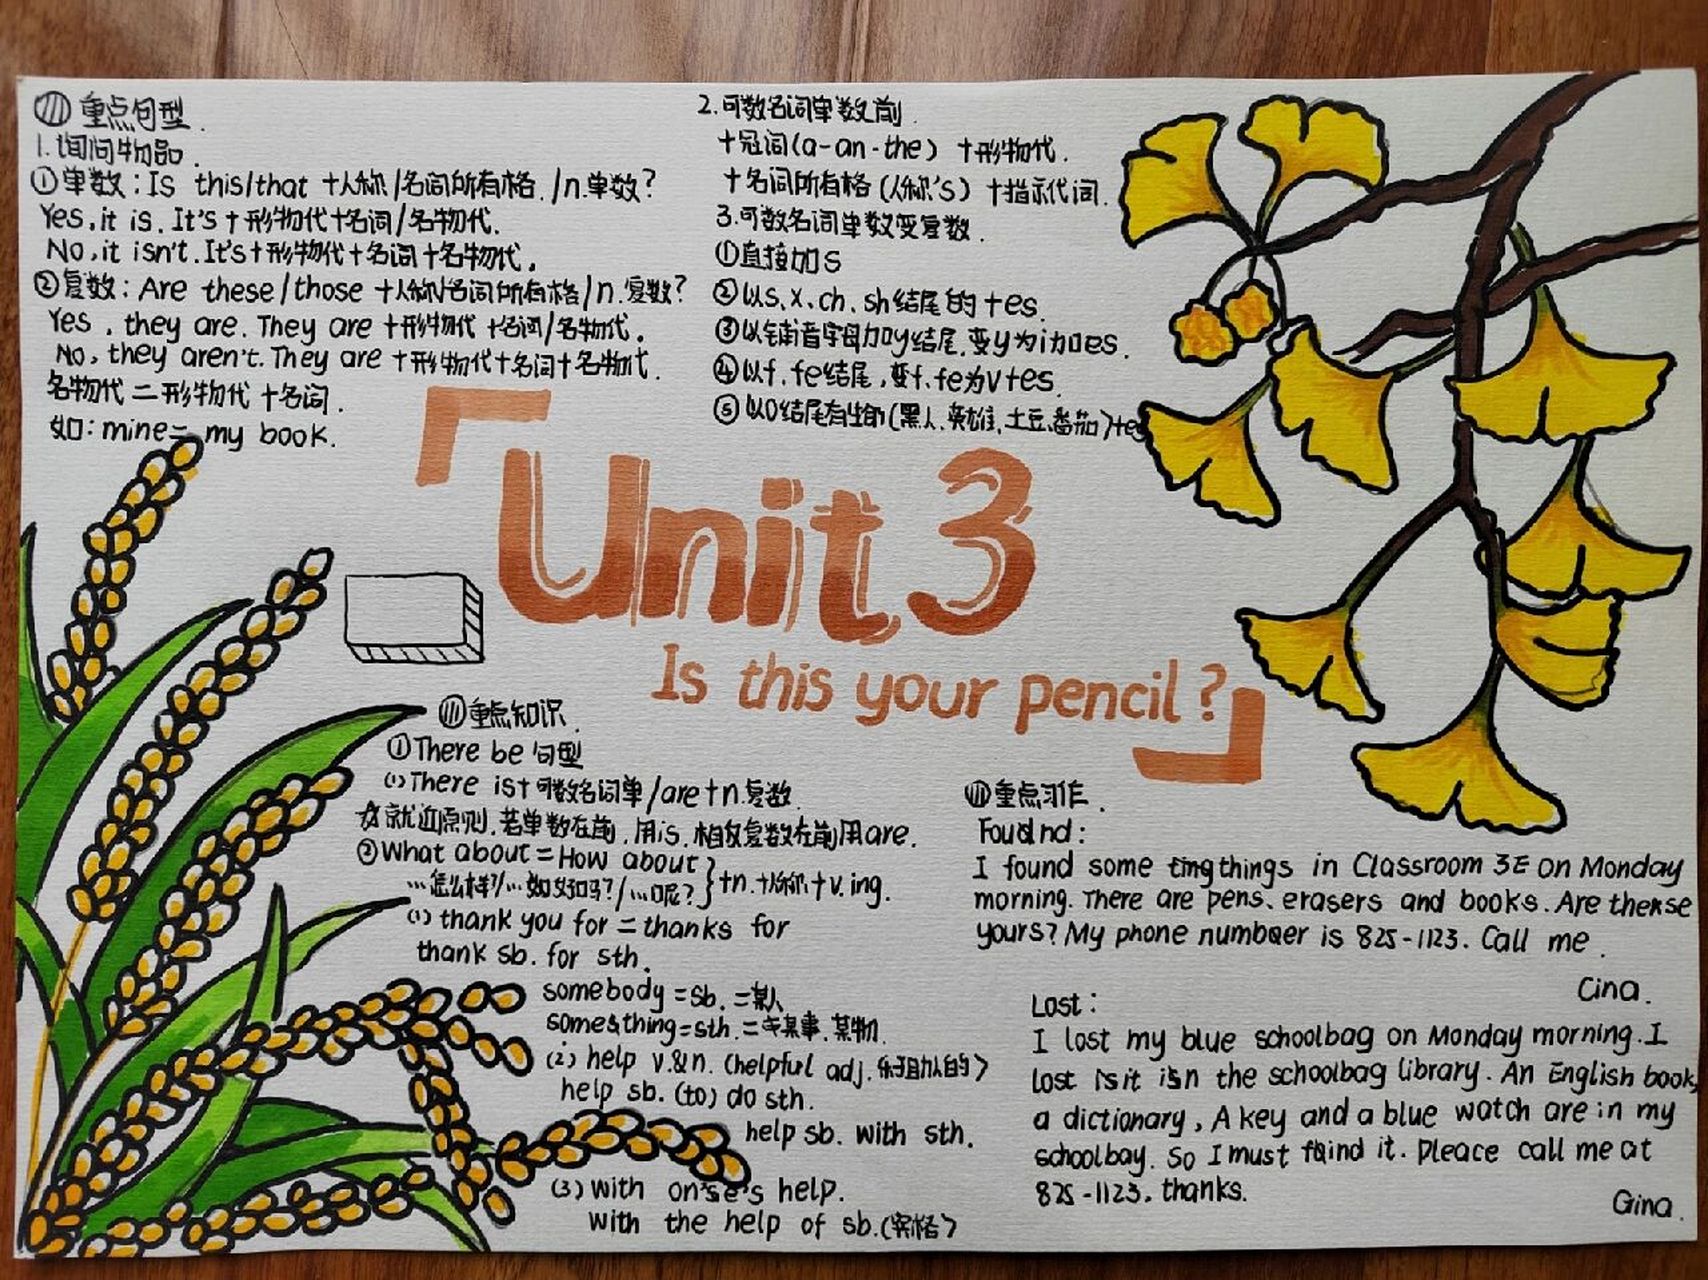 重点句型.
1.询问物品.
①单数:Is this/that +人称/名词所有格./n.单数?
Yes,it is. It's+形物代+名词/名物代.
No,it isn't.It's+形物代+名词+名物代.
②复数:Are these/those +人称/名词所有格/n.复数?
Yes, they are. They are +形物代+名词/名物代.
No, they aren't. They are +形物代+名词+名物代.
名物代=形物代+名词.
如:mine= my book.
2.可数名词单数前.
+冠词(a-an-the) +形物代.
+名词所有格(人称's) +指示代词.
3.可数名词单数变复数.
①直接加s
②以s.x.ch.sh结尾的+es.
③以辅音字母加y结尾.变y为i加es.
④以f.fe结尾,变f.fe为v+es.
⑤以o结尾有生命(黑人.英雄.土豆.番茄)+es
Unit 3
Is this your pencil?
重点知识.
①There be 句型
(1)There is+可数名词单/are+n.复数.
☆就近原则.若单数在前.用is.相反复数在前用are.
②What about=How about
…怎么样?/…如何?/…呢? }+n.+人称+v.ing.
(1) thank you for = thanks for
thank sb. for sth.
somebody =sb. =某人
something=sth.=某事.某物.
(2) help v.&n. (helpful adj.乐于助人的)
help sb. (to) do sth.
help sb. with sth.
(3) with one's help.
with the help of sb.(宾格)
重点习作.
Found:
I found some things in Classroom 3E on Monday
morning. There are pens、erasers and books. Are these
yours? My phone number is 825-1123. Call me.
Cina.
Lost:
I lost my blue schoolbag on Monday morning. I
lost it in the schoolbag library. An English book,
a dictionary, A key and a blue watch are in my
schoolbay. So I must find it. Pleace call me at
825-1123. thanks.
Gina.